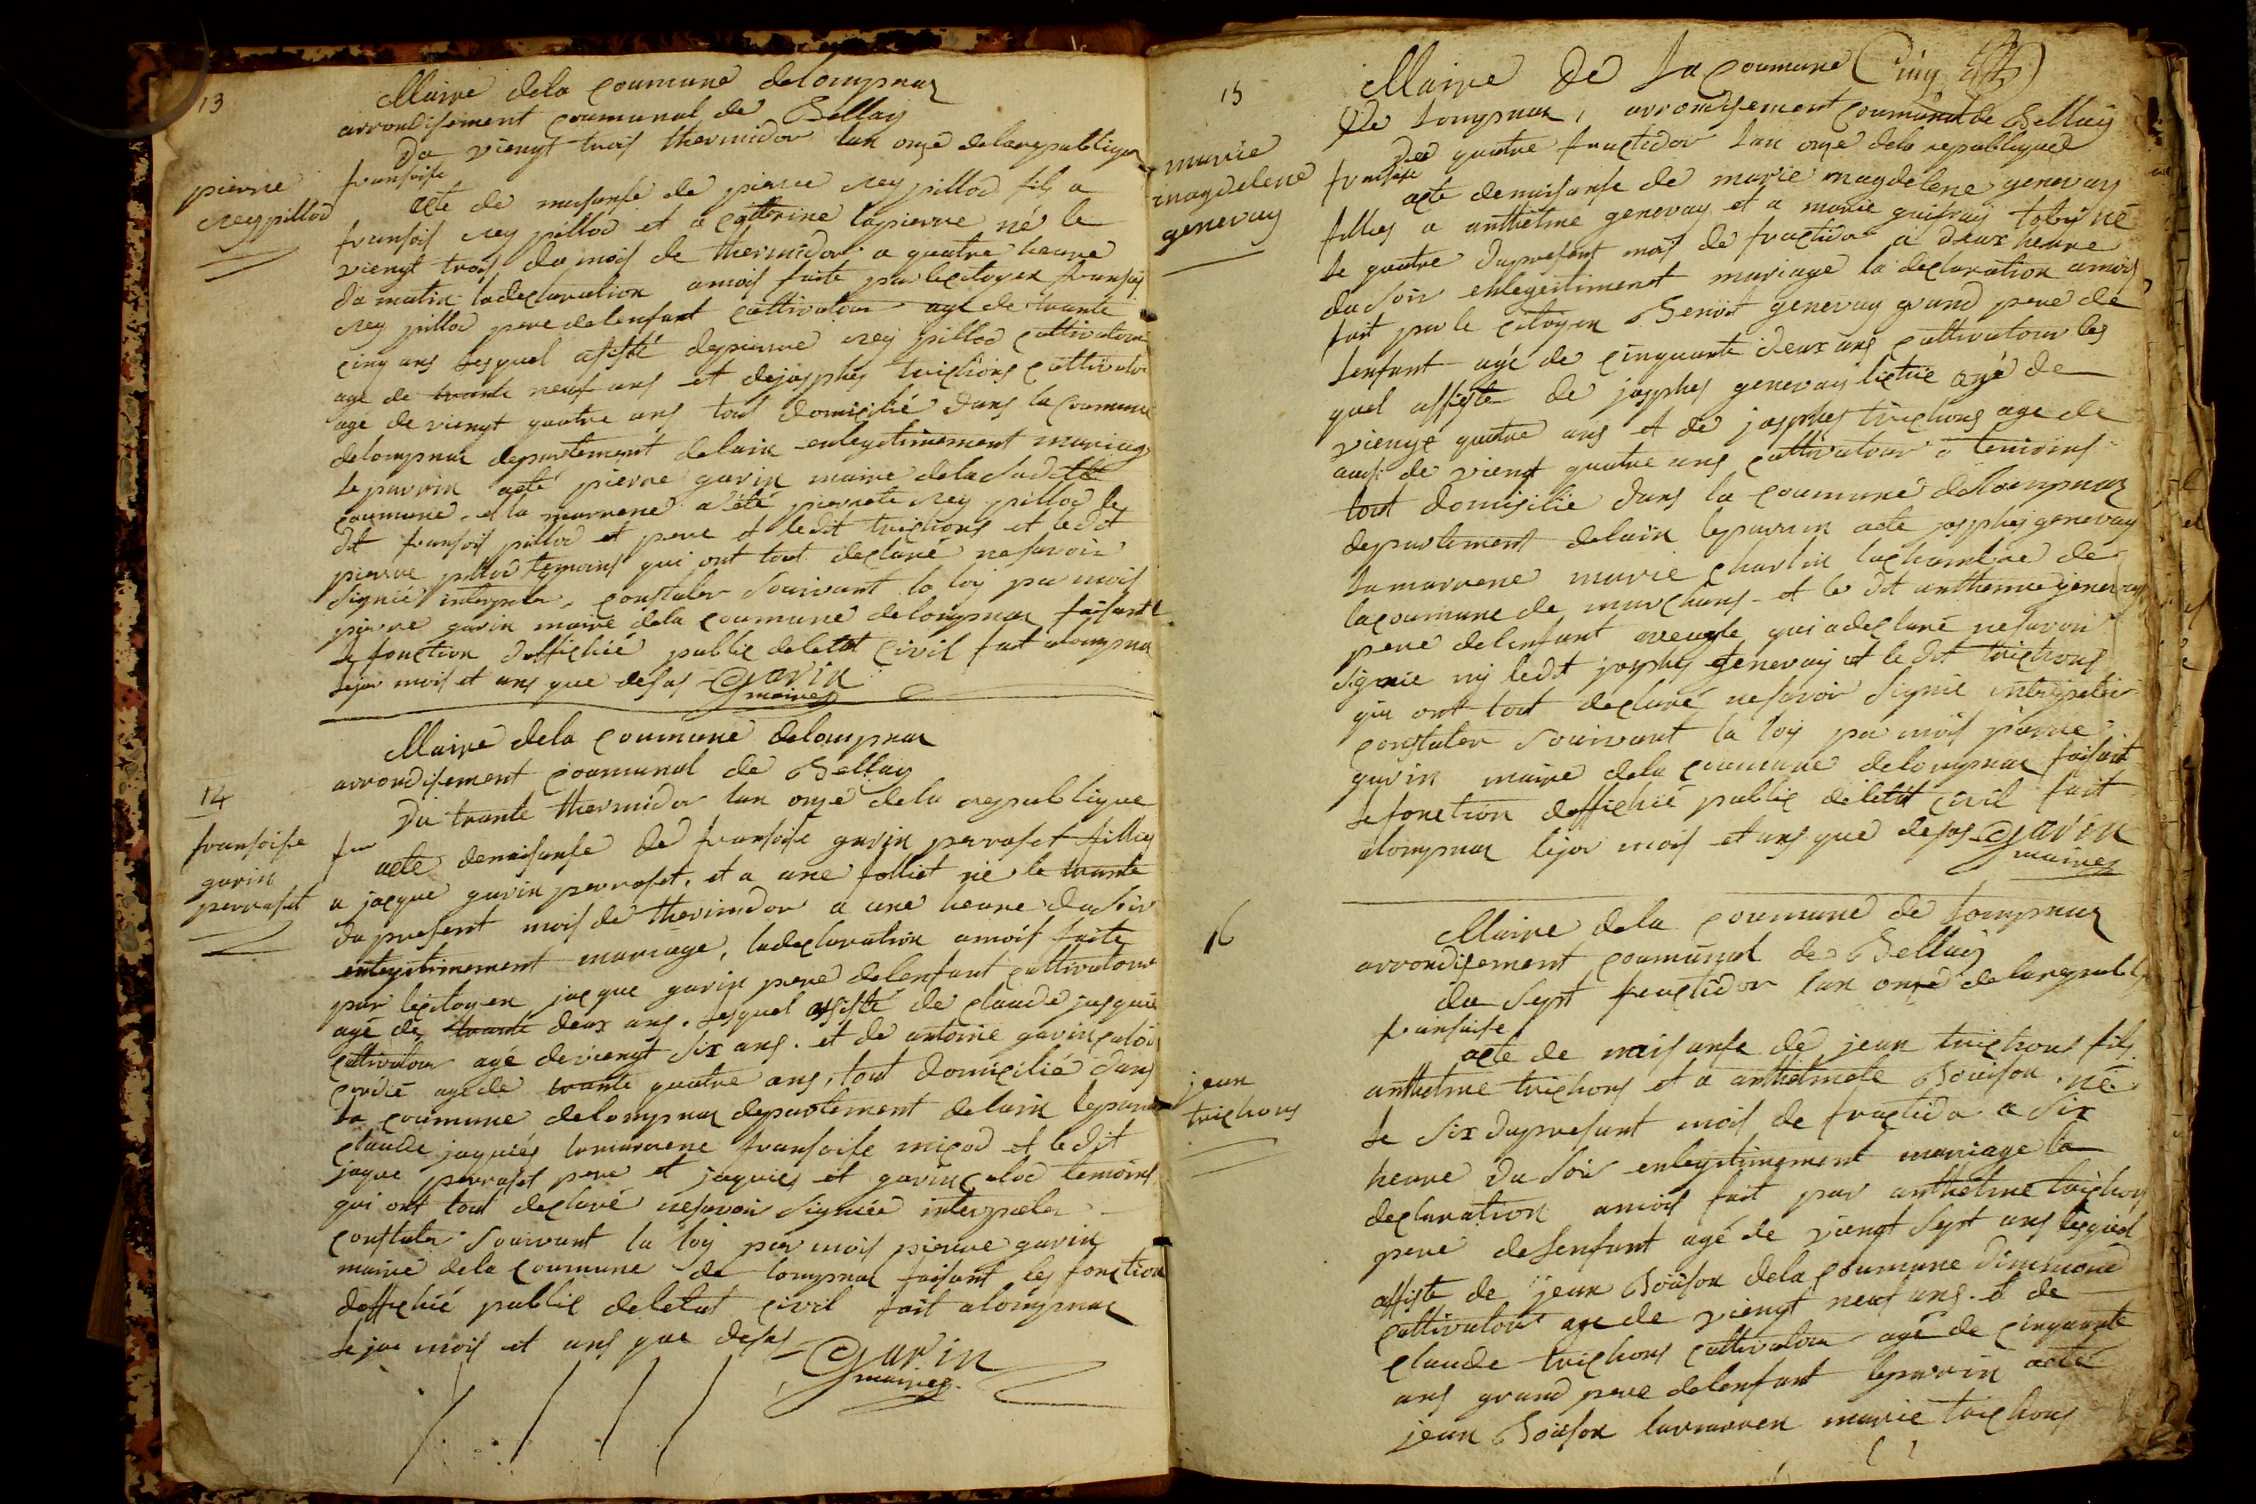 13
Maire dela Coumune delompnas
arrondisement Coumunal de Bellay
Du viengt trois thermidor lan onze delarepublique
fransoise
pierre
rey pillod
acte de naisanse de pierre rey pillod fils a
fransois rey pillod et a Catterine lapierre né le
viengt trois du mois de thermidor a quatre heure
du matin ladeclaration amois faite par lecitoyen fransois
rey pillod pere delenfant Cultivatour agé de trante
cinq ans lesquel asisté depierre rey pillod Cultivatour
age de trante neuf ans et dejosphes trichons Cultivator
agé de viengt quatre ans tous domicilié dans la Coumune
delompnas departement delain enlegitimement mariage
le parrin aeté pierre garin maire delasuditte
coumune. et la marrene a été pierrete rey pillod le
dit fransois pillod et pere et ledit trichons et ledit
pierre pillod temoins qui ont tout declaré nesavoir
signié interpeler, constater souivant la loy par mois
pierre garin maire dela Coumune delompnas faisant
le fonction dofficié public deletat civil fait alompnas
lejor mois et ans que desus Garin
maire
14
Maire dela Coumune delompnas
arrondisement Coumunal de Bellay
Du trante thermidor lan onze dela republique
fransoise
garin
perraset
fra
acte denaisanse de fransoise garin perraset fillies
a jacque garin perraset, et a ane folliet né le trante
du present mois de thermidor a une heure du soir
enlegitimement mariage, ladeclaration amois faite
par lecitoyen jacque garin pere delenfant Cultivatour
agé de trante deux ans. lesquel assisté de claude jaquié
Cultivatour agé deviengt six ans. et de antoine garin calod
cordié age de trante quatre ans, tout domicilié dans
la Coumune delompnas departement delain leparrin
claude jaquiés lamarrene fransoise micod et ledit
jaque perraset pere et jaquies et garin calod temoins
qui ont tout declaré nesavoir signiée interpeler
constater souivant la loy par mois pierre garin
maire dela Coumune de lompnas faisant les fonction
dofficié public deletat civil fait alompnas
le jor mois et ans que desus Garin
maire
15
Maire de La Coumune Cinq
De Lompnas, arrondisement Coumunal de Bellay
Du quatre fructidor lan onze dela republique
fransoise
marie
magdelene
genevay
acte denaisanse de marie magdelene genevay
fillies a anthelme genevay et a marie né
le quatre dupresent mois de fructidor a deux heure
du soir enlegitiment mariage la declaration amois
fait par le Citoyen Benoit genevay grand pere de
lenfant agé de cinquante deux ans Cultivatour les
quel assisté de josphes genevay agé de
viengt quatre ans et de josphes trichons age de
ausi de viengt quatre ans Cultivatour a temoins
tout domicilié dans la Coumune delompnas
departement delain leparrin aeté josphes genevay
lamarrene marie Charlin lachambre de
lacoumune de marchans et le dit anthelme genevay
pere delenfant aveugle qui adeclaré nesavoir
signie ny ledit josphes genevay et le dit trichons
qui ont tout declaré nesavoir signié interpeler
constater souivant la loy par mois pierre
garin maire dela Coumune delompnas faisant
le fonction dofficié public deletat civil fait
alompnas lejor mois et ans que desus Garin
maire
16
Maire dela Coumune de lompnas
arrondisement Coumunal de Bellay
du sept fructidor lan onze delarepubl
fransoise
jean
trichons
acte de naisanse de jean trichons fils
anthelme trichons et a anthelmete Bouison. né
le six dupresant mois de fructidor a six
heure du soir enlegitimement mariage la
declaration amois fait par anthelme trichons
pere delenfant agé de viengt sept ans lesquel
assiste de jean Bouison dela Coumune dinnimond
Cultivatour age de viengt neuf ans. et de
claude trichons Cultivatour agé de cinquante
ans grand pere delenfant leparrin aeté
jean Bouison lamarren marie trichons